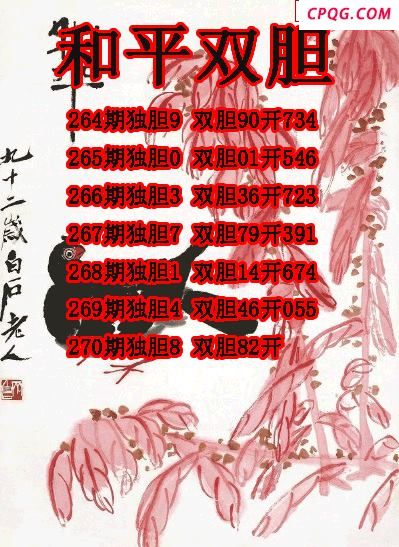 CPQG.COM
和平双胆
264期独胆9 双胆90开734
265期独胆0 双胆01开546
266期独胆3 双胆36开723
267期独胆7 双胆79开391
268期独胆1 双胆14开674
269期独胆4 双胆46开055
270期独胆8 双胆82开
九十二岁白石老人